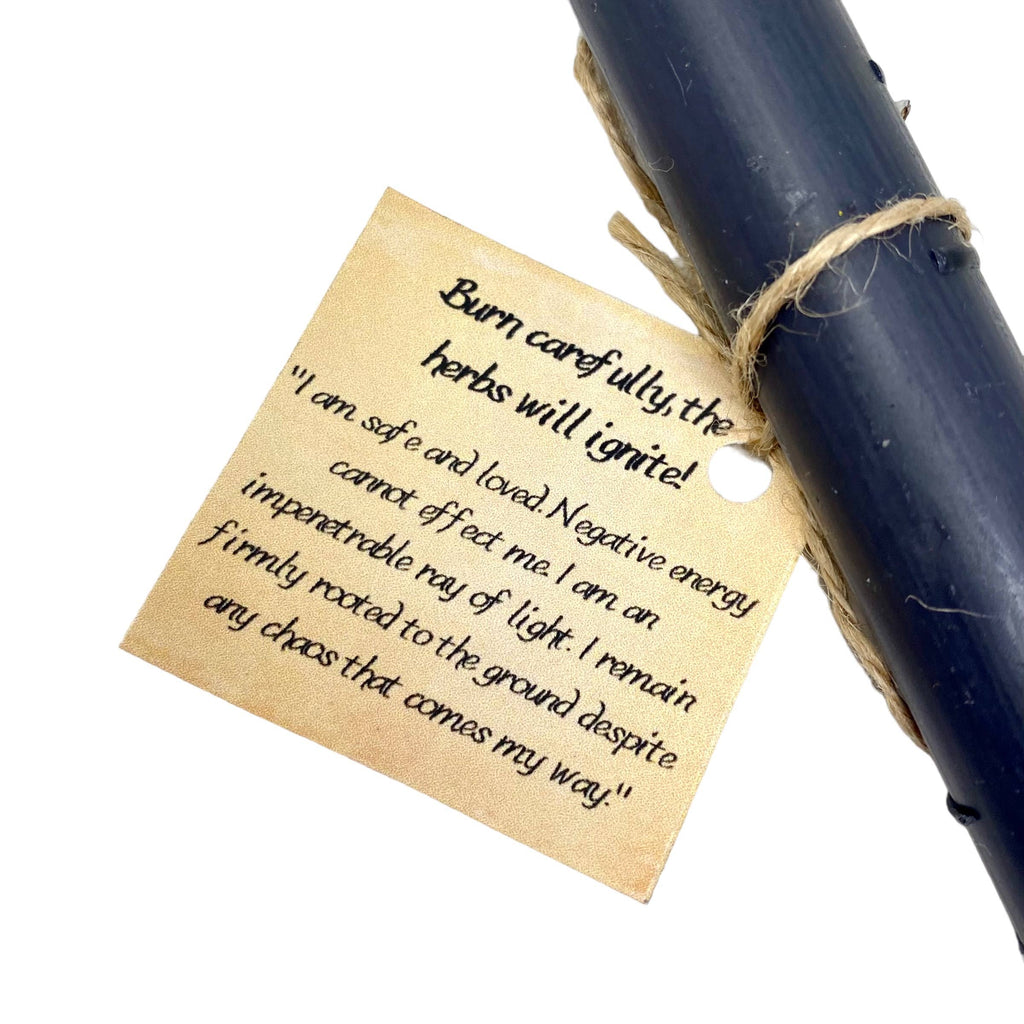 Burn carefully, the
herbs will ignite!
"I am safe and loved. Negative energy
cannot effect me. I am an
impenetrable ray of light. I remain
firmly rooted to the ground despite
any chaos that comes my way."